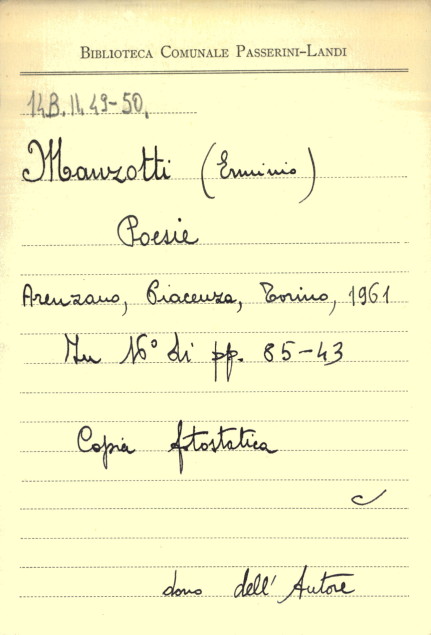 BIBLIOTECA COMUNALE PASSERINI-LANDI
14B.II.49-50.
Manzotti (Erminio)
Poesie
Arenzano, Piacenza, Torino, 1961
In 16° di pp. 85-43
Copia fotostatica
dono dell' Autore